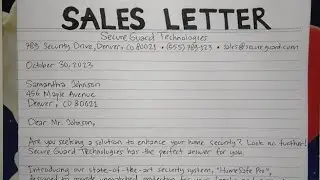 SALES LETTER
Secure Guard Technologies
789 Security Drive, Denver, CO 80021 • (555) 789-123 • sales@secureguard.com
October 30, 2023
Samantha Johnson
456 Maple Avenue
Denver, CO 80021
Dear Mr. Johnson,
Are you seeking a solution to enhance your home security? Look no further!
Secure Guard Technologies has the perfect answer for you.
Introducing our state-of-the-art security system, "HomeSafe Pro",
designed to provide unmatched protection for your